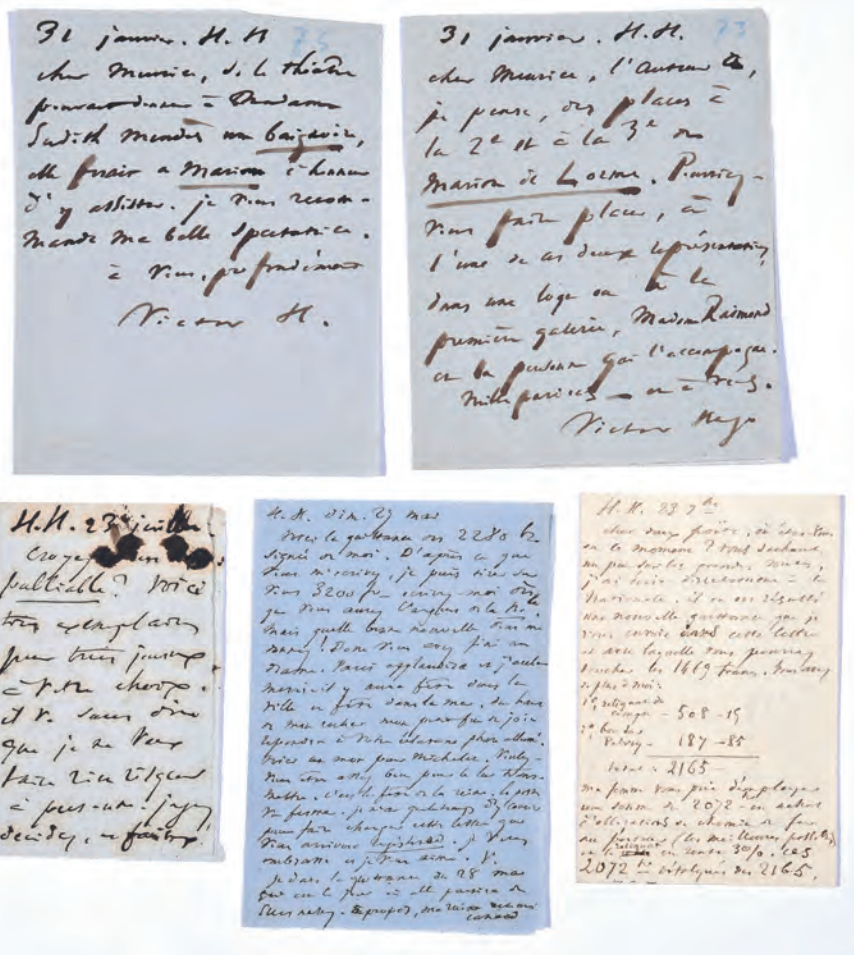 31 janvier. H. H 75
cher Meurice, si le théâtre
pouvait donner à Madame
Judith Mendès une baignoire,
elle ferait à Marion l'honneur
d'y assister. je vous recom-
mande ma belle spectatrice.
à vous, profondément
Victor H.
31 janvier. H. H. 73
cher Meurice, l'auteur a,
je pense, des places à
la 2e et à la 3e de
Marion de Lorme. Pourriez-
vous faire placer, à
l'une de ces deux représentations,
dans une loge ou à la
première galerie, Madame Raimond
et la personne qui l'accompagne.
Mille pardons — et à vous.
Victor Hugo
H. H. 23 juillet
croyez
publiable? voici
trois exemplaires
pour trois journaux
à votre choix.
il va sans dire
que je ne veux
faire rien risquer
à personne. jugez
décidez, et faites!
H. H. dim. 29 mai
Voici la quittance des 2280 fr.
signée de moi. D'après ce que
vous m'écrivez, je puis tirer sur
vous 3200 fr. écrivez-moi dès
que vous aurez l'argent de la
mais quelle bonne nouvelle vous me
donnez! Donc vous avez fini un
drame. Paris applaudira et j'
il y aura fête dans la
ville et fête dans la mer. du haut
de mon rocher mon
répondra à votre phare allumé.
Voici un mot pour Michelet. Veuil-
lez être assez bon pour le lui trans-
mettre. c'est la fête de la reine. la poste
va fermer. je n'ai que le temps d'
pour faire charger cette lettre que
vous arrivera registered. je vous
embrasse et je vous aime. V.
je date la quittance du 28 mai
qui est le jour où elle partira de
Guernesey.
H. H. 23
cher doux poëte, où êtes-vous
en ce moment?
un peu sur les grands
j'ai écrit directement à la
Nationale. il en est résulté
une nouvelle quittance que je
vous envoie dans cette lettre
et avec laquelle vous pourrez
toucher les 1669 francs. Vous avez
de plus à moi:
1° reliquat de
compte - 508 - 15
2° bon sur
187 - 85
total = 2165 —
ma femme vous prie d'employer
une somme de 2072 en achat
d'obligations de chemin de fer
au porteur (les meilleures possibles)
en rente 3 %. ces
2072 défalqués des 2165,